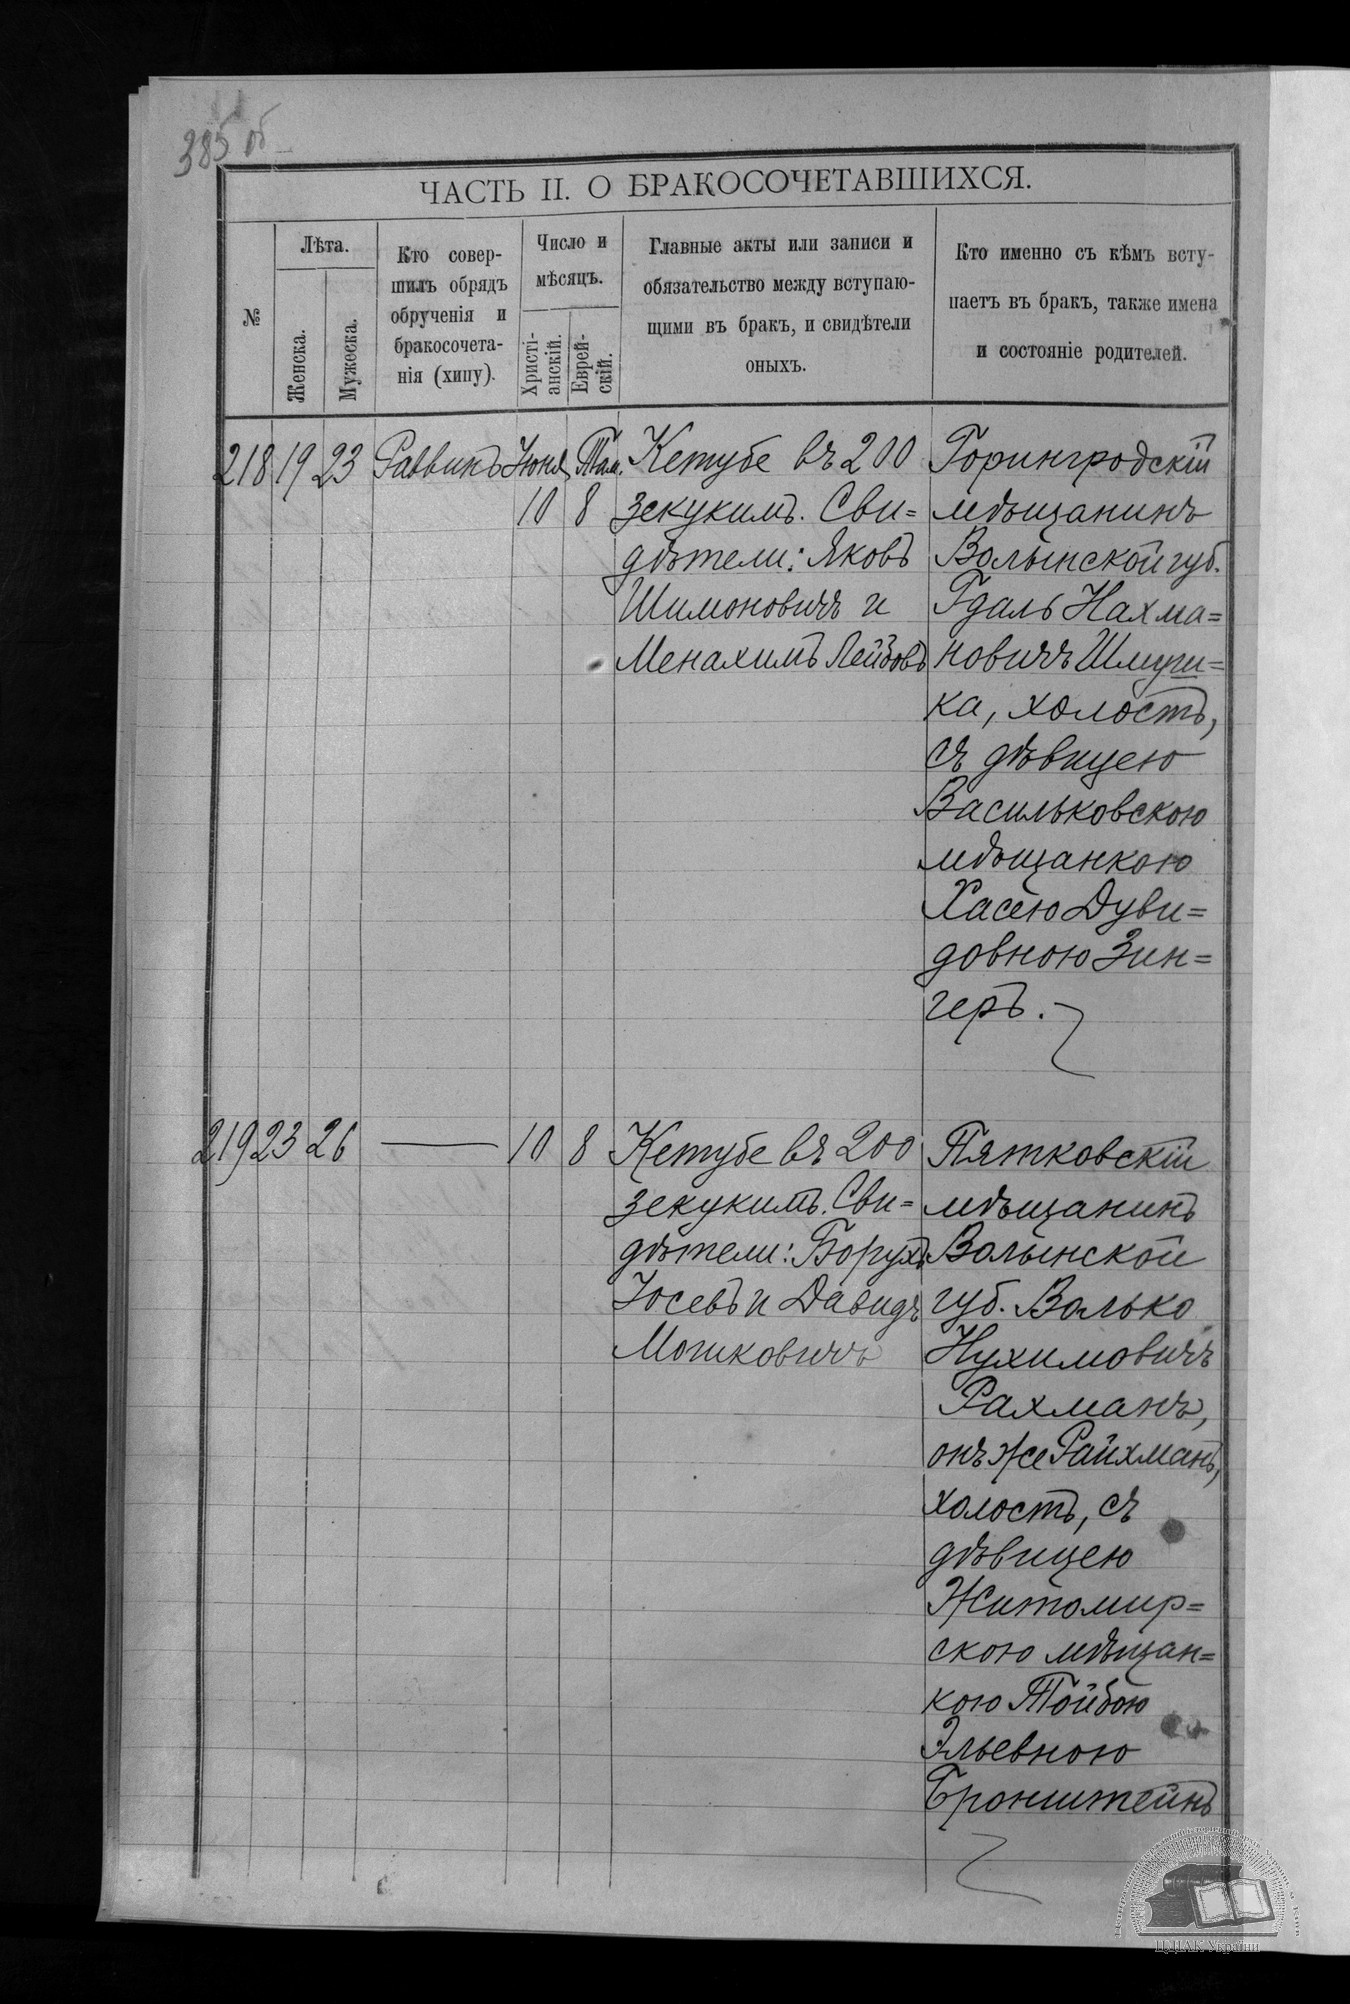 385 об
ЧАСТЬ II. О БРАКОСОЧЕТАВШИХСЯ.
№
Лѣта.
Женска.
Мужеска.
Кто совер-
шилъ обрядъ
обрученія и
бракосочета-
нія (хипу).
Число и
мѣсяцъ.
Христі-
анскій.
Еврей-
скій.
Главные акты или записи и
обязательство между вступаю-
щими въ бракъ, и свидѣтели
оныхъ.
Кто именно съ кѣмъ всту-
паетъ въ бракъ, также имена
и состояніе родителей.
218 19 23 Раввинъ Іюня 10 Там. 8
Кетубе въ 200
зекукимъ. Сви=
дѣтели: Яковъ
Шимоновичъ и
Менахимъ Лейбовъ
Горингродскій
мѣщанинъ
Волынской губ.
Гдаль Нахма=
новичъ Шмуши=
ка, холостъ,
съ дѣвицею
Васильковскою
мѣщанкою
Хасею Дуви=
довною Зин=
геръ.
219 23 26 — 10 8
Кетубе въ 200
зекукимъ. Сви=
дѣтели: Борухъ
Іосевъ и Давидъ
Мошковичъ
Пятковскій
мѣщанинъ
Волынской
губ. Волько
Нухимовичъ
Рахманъ,
онъ же Райхманъ,
холостъ, съ
дѣвицею
Житомир=
скою мѣщан=
кою Тойбою
Эльевною
Бронштейнъ
ЦДІАК України